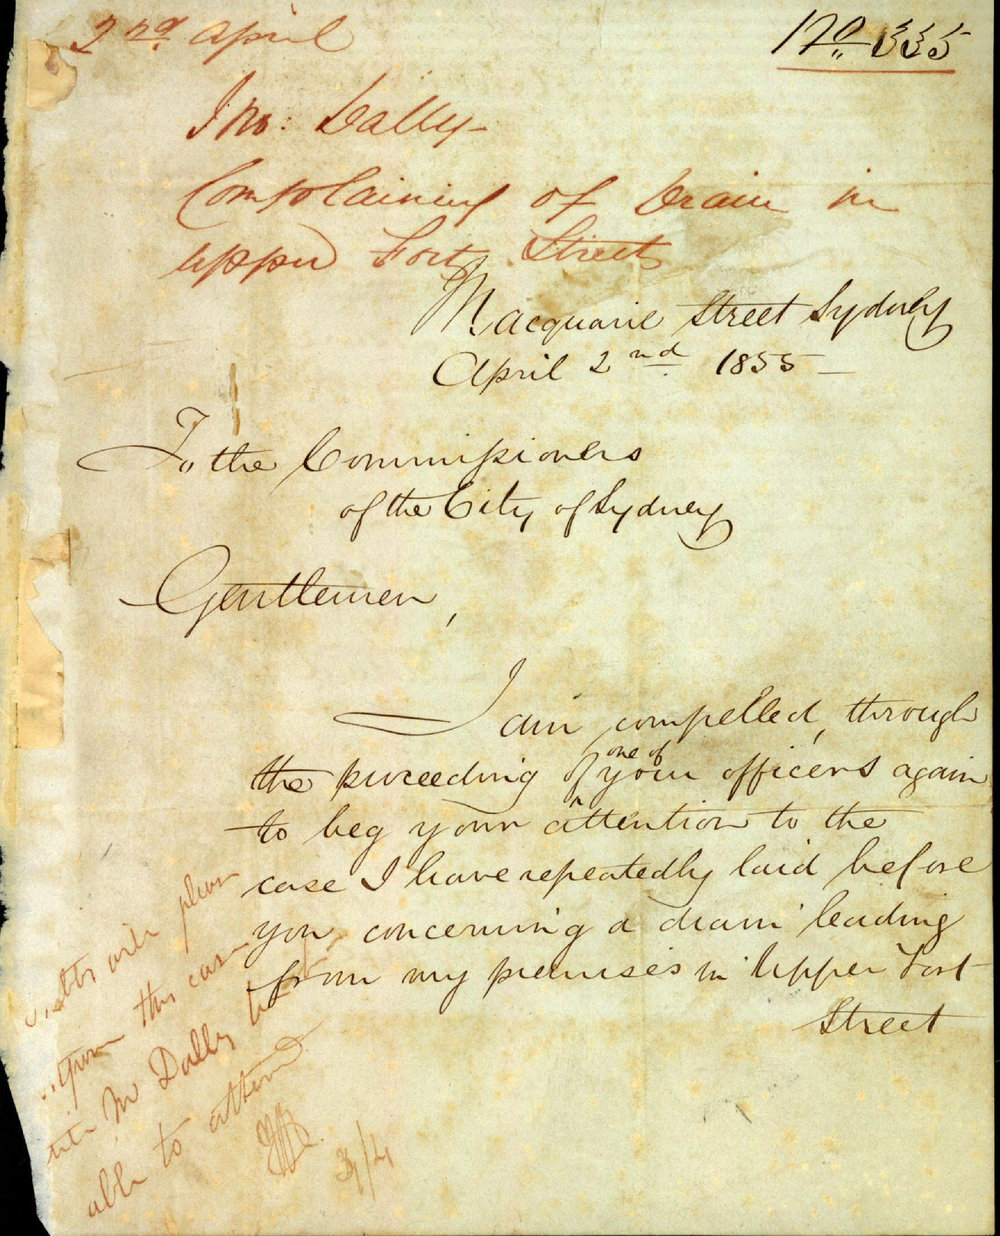 2nd April
No 335
Jno. Dally
Complaining of Drain in
upper Fort Street
Macquarie Street Sydney
April 2nd 1855
To the Commissioners
of the City of Sydney
Gentlemen,
I am compelled, through
the proceeding of one of your officers again
to beg your attention to the
case I have repeatedly laid before
you concerning a drain leading
from my premises in Upper Fort
Street
will please
this case
Mr Dalley
able to attend
3/4